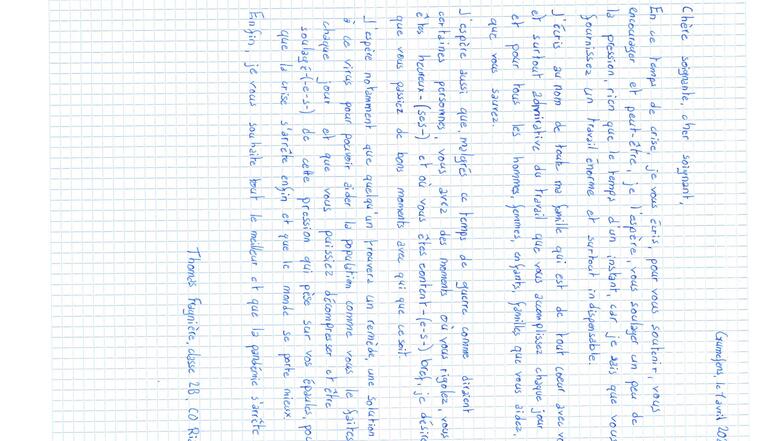 le 1 avril
Chère soignante, cher soignant,
En ce temps de crise, je vous écris, pour vous soutenir, vous
encourager et peut-être, je l'espère, vous soulager un peu de
la pression, rien que le temps d'un instant, car je sais que vous
fournissez un travail énorme et surtout indispensable.
J'écris au nom de toute ma famille qui est de tout coeur avec
et surtout admirative du travail que vous accomplissez chaque jour
et pour tous les hommes, femmes, enfants, familles que vous aidez,
que vous sauvez.
J'espère aussi que, malgrés ce temps de guerre comme diraient
certaines personnes, vous avez des moments où vous rigolez, vous
êtes heureux-(ses-) et où vous êtes content-(e-s-) bref, je désire
que vous passiez de bons moments avec qui que ce soit.
J'espère notamment que quelqu'un trouvera un remède, une solution
à ce virus pour pouvoir aider la population comme vous le faites
chaque jour et que vous puissiez décompresser et être
soulagé-(-e-s-) de cette pression qui pèse sur vos épaules,
que la crise s'arrête enfin et que le monde se porte mieux.
Enfin, je vous souhaite tout le meilleur et que la pandémie s'arrête
Thomas classe 2B, CO